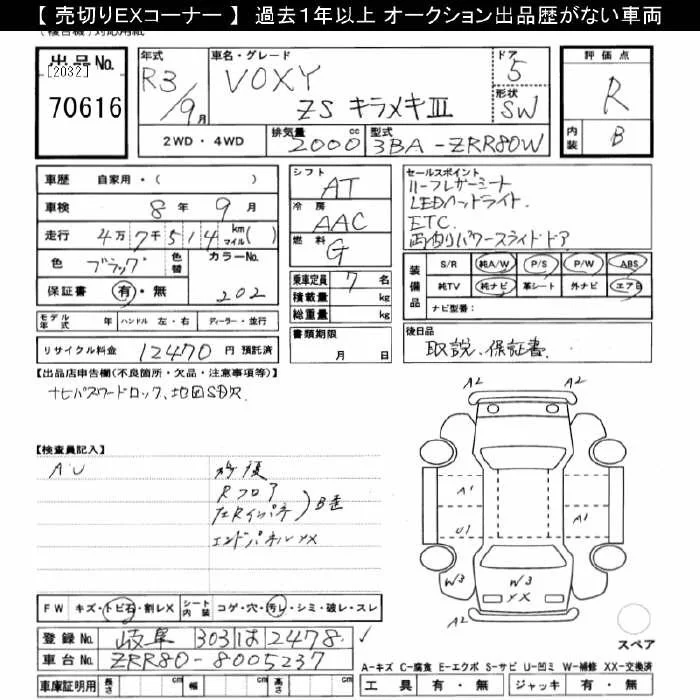 【 売切りEXコーナー 】 過去１年以上 オークション出品歴がない車両
出品No. [2032] 70616
年式 R3/9月
車名・グレード VOXY ZS キラメキⅢ
ドア 5
形状 SW
評価点 R
内装 B
2WD ・ 4WD
排気量 2000 cc
型式 3BA-ZRR80W
車歴 自家用・( )
車検 8年 9月
走行 4万7千514 km マイル( )
色 ブラック 色替
カラーNo. 202
保証書 有・無
モデル年式 年 ハンドル 左・右 ディーラー・並行
リサイクル料金 12470 円 預託済
シフト AT
冷房 AAC
燃料 G
乗車定員 7 名
積載量 kg
総重量 kg
書類期限 月 日
セールスポイント
ハーフレザーシート
LEDヘッドライト.
ETC.
両側パワースライドドア
装備品 S/R 純A/W P/S P/W ABS
純TV 純ナビ 革シート 外ナビ エアB
ナビ型番:
後日品
取説、保証書
【出品店申告欄(不良箇所・欠品・注意事項等)】
ナビパスワードロック、地図SD欠
【検査員記入】
AU
修復
Rフロア
左Rインパネ B歪
エンドパネルXX
A2 A2
A1
U1 A1
W3 W3 A2
XX
FW キズ・トビ石・割レX シート内装 コゲ・穴・汚レ・シミ・破レ・スレ
スペア
登録No. 岐阜 303 は 2478
車台No. ZRR80-8005237
A-キズ C-腐食 E-エクボ S-サビ U-凹ミ W-補修 XX-交換済
車庫証明用 長さ cm 幅 cm 高さ cm
工具 有・無 ジャッキ 有・無